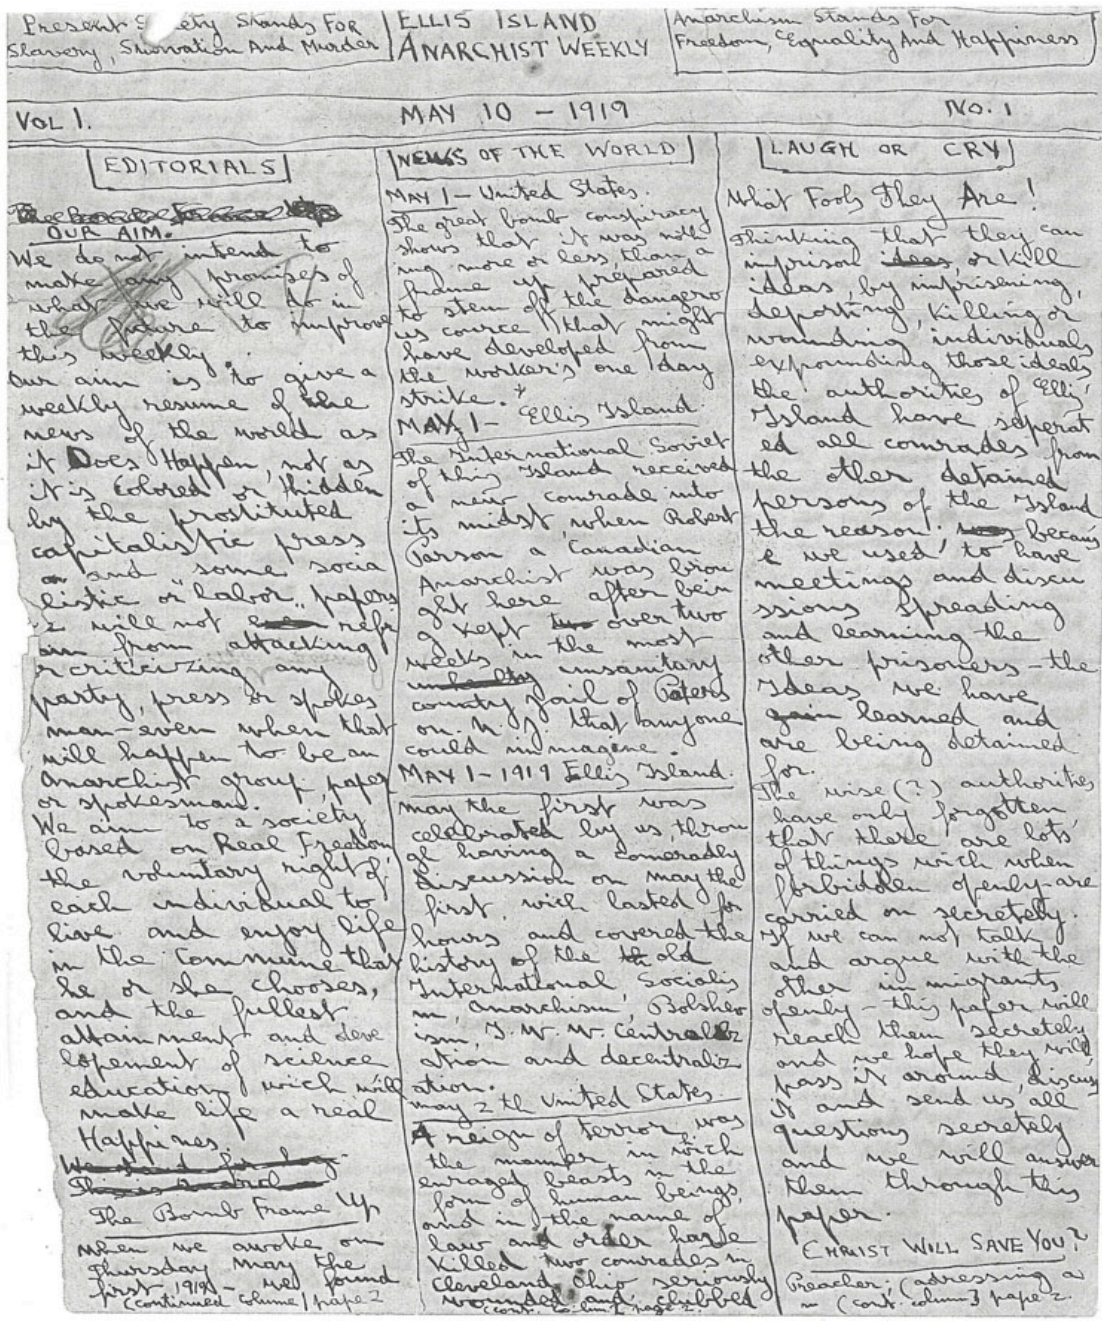 Present Society Stands For
Slavery, Starvation And Murder
ELLIS ISLAND
ANARCHIST WEEKLY
Anarchism Stands For
Freedom, Equality And Happiness
VOL 1.
MAY 10 - 1919
No. 1
EDITORIALS
OUR AIM.
We do not intend to
make any promises of
what we will do in
the future to improve
this weekly.
Our aim is to give a
weekly resume of the
news of the world as
it Does Happen, not as
it is colored or hidden
by the prostituted
capitalistic press
and some socia
listic or "labor" papers
& will not refr
ain from attacking
or criticizing any
party, press or spokes
man - even when that
will happen to be an
Anarchist group, paper
or spokesman.
We aim to a society
based on Real Freedom
the voluntary right of
each individual to
live and enjoy life
in the Commune that
he or she chooses,
and the fullest
attainment and deve
lopement of science
education, wich will
make life a real
Happines.
The Bomb Frame Up
When we awoke on
Thursday May the
first 1919 - we found
(continued colume 1 page 2
NEWS OF THE WORLD
MAY 1 - United States.
The great bomb conspiracy
shows that it was noth
ing more or less than a
frame up prepared
to stem off the dangero
us cource that might
have developed from
the worker's one day
strike. *
MAY 1 - Ellis Island.
The International Soviet
of this Island received
a new comrade into
its midst when Robert
Parson a Canadian
Anarchist was brou
ght here after bein
g kept over two
weeks in the most
unsanitary
county jail of Paters
on. N.J. that anyone
could immagine.
MAY 1 - 1919 Ellis Island.
May the first was
celebrated by us, throu
gh having a comeradly
discussion on May the
first, wich lasted for
hours and covered the
history of the old
International, Socialis
m, Anarchism, Bolshev
ism, I.W.W. Centraliz
ation and decentraliz
ation.
May 2 th United States.
A reign of terror was
the manner in wich
enraged beasts in the
form of human beings,
and in the name of
law and order have
killed two comrades in
Cleveland Ohio seriously
wounded and clubbed
(cont. column 1 page 2.
LAUGH OR CRY
What Fools They Are!
Thinking that they can
imprison or kill
ideas, by imprisening,
deporting, killing or
wounding individuals
expounding those ideals
the authorities of Ellis
Island have seperat
ed all comrades from
the other detained
persons of the Island
the reason; becaus
e we used to have
meetings and discu
ssions spreading
and learning the
other prisoners - the
Ideas we have
learned and
are being detained
for.
The wise (?) authorities
have only forgotten,
that there are lots
of things wich when
forbidden openly - are
carried on secretely.
If we can not talk
and argue with the
other immigrants
openly - this paper will
reach them secretely
and we hope they will
pass it around, discuss
it and send us all
questions secretely
and we will answer
them through this
paper.
CHRIST WILL SAVE YOU?
Preacher; (adressing a
m (cont. column 3 page 2.